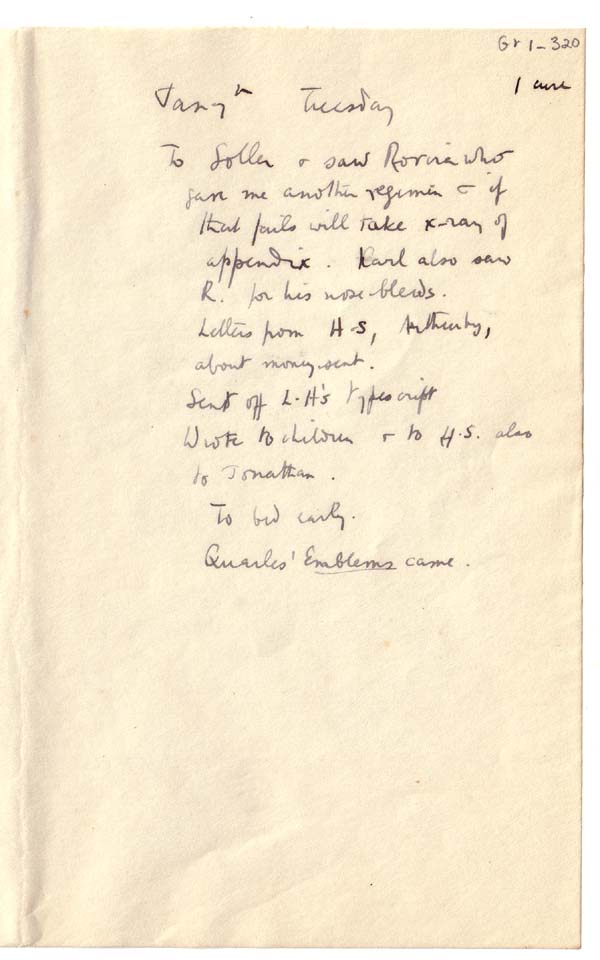 Gr 1-320
1
Jan 7th Tuesday
To Soller & saw Rovira who
gave me another regimen & if
that fails will take x-ray of
appendix. Karl also saw
R. for his nose-bleeds.
Letters from H-S,
about money sent.
Sent off L-H's typescript
Wrote to children & to H.S. also
to Jonathan.
To bed early.
Quarles' Emblems came.